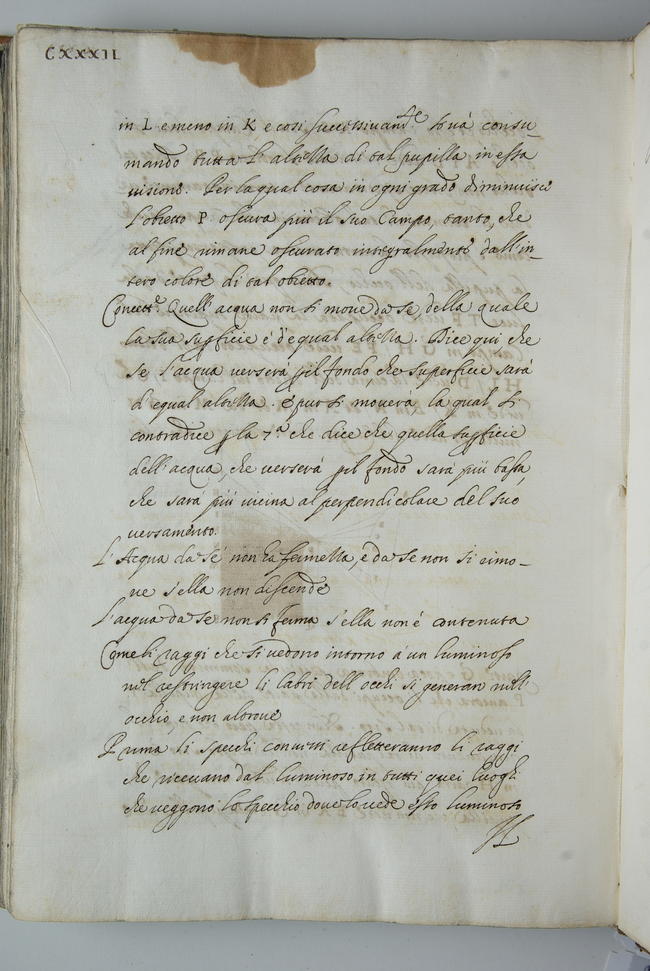 CXXXII
in L e meno in K e cosi successivam.te si và consu_
mando tutta l'altezza di tal pupilla in essa
visione. Per la qual cosa in ogni grado diminuisce
l'obietto P. oscura più il suo Campo, tanto, che
al fine rimane oscurato integralmente dall'in_
tero colore di tal obietto.
Concett.o Quell'acqua non si move da se, della quale
la sua supficie é d'equal altezza. Dice qui che
se l'acqua verserà pil fondo, che superficie sarà
d'equal altezza. é pur si moverà la qual si
contradice p la 7.a che dice che quella supficie
dell'acqua, che verserà pil fondo sarà più bassa,
che sarà più vicina al perpendicolare del suo
versamento.
L'Acqua da se non ha fermezza, e da se non si rimo_
ve s'ella non discende
L'acqua da se non si ferma s'ella non é contenuta
Come li raggi che si vedono intorno á un luminoso
nel restringere li labri dell occhi si generan nell
occhio, e non altrove
Prima li specchi convessi refletteranno li raggi
che ricevano dal luminoso in tutti quei luoghi
che veggono lo specchio dove lo vede esso luminoso
Il